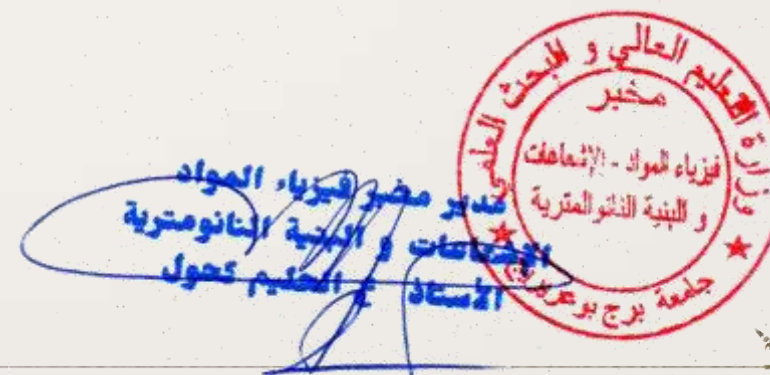 وزارة التعليم العالي و البحث العلمي
مخبر
فيزياء المواد - الإشعاعات
و البنية النانو المترية
جامعة برج بوعريريج
مدير مخبر فيزياء المواد
الإشعاعات و البنية النانومترية
الأستاذ ع الحليم كحول